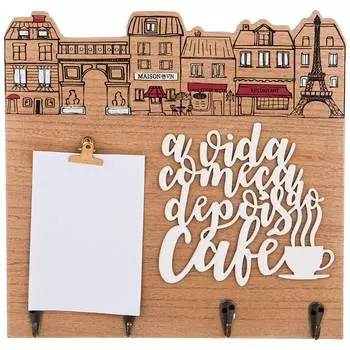 MAISON DU VIN
RESTAURANT
a vida
começa
depois do
café